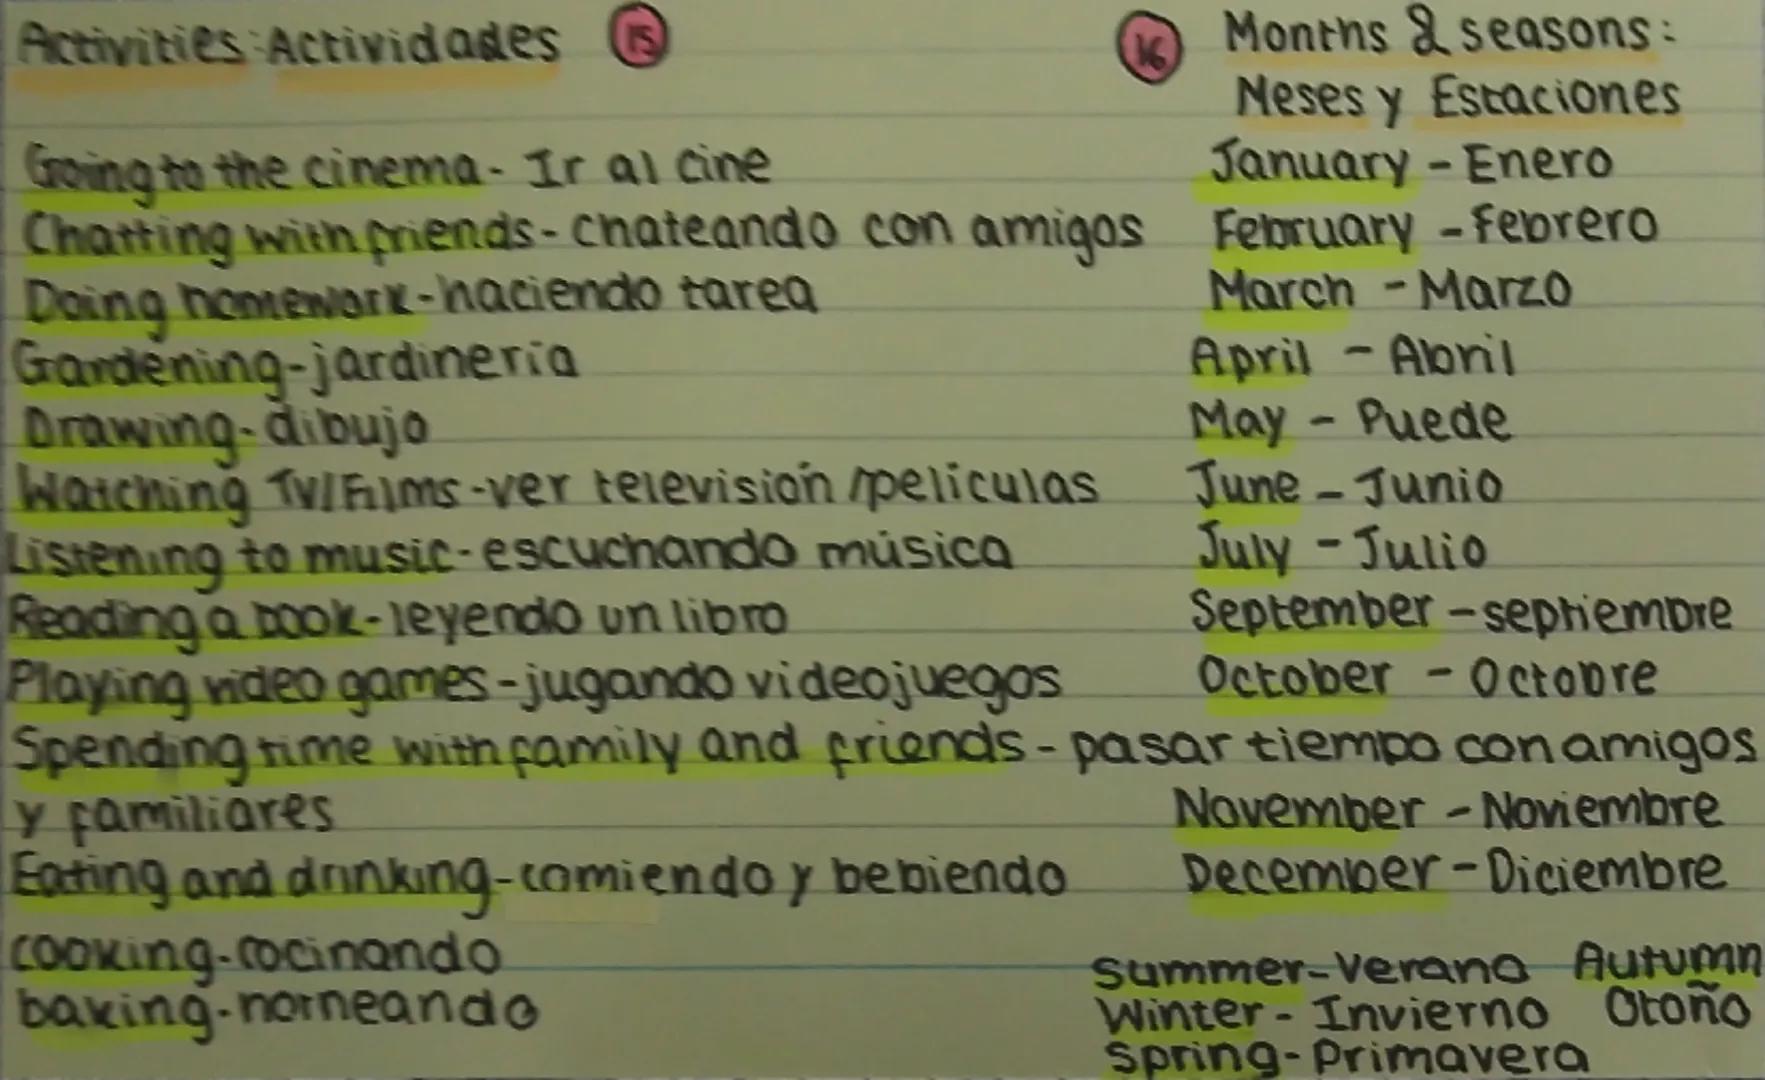 Activities: Actividades 15
Going to the cinema - Ir al cine
Chatting with friends - chateando con amigos
Doing homework - haciendo tarea
Gardening - jardinería
Drawing - dibujo
Watching TV/Films - ver televisión/películas
Listening to music - escuchando música
Reading a book - leyendo un libro
Playing video games - jugando videojuegos
Spending time with family and friends - pasar tiempo con amigos
y familiares
Eating and drinking - comiendo y bebiendo
cooking - cocinando
baking - horneando
16 Months & seasons:
Meses y Estaciones
January - Enero
February - febrero
March - Marzo
April - Abril
May - Puede
June - Junio
July - Julio
September - septiembre
October - Octobre
November - Noviembre
December - Diciembre
Summer - Verano Autumn
Winter - Invierno Otoño
Spring - Primavera